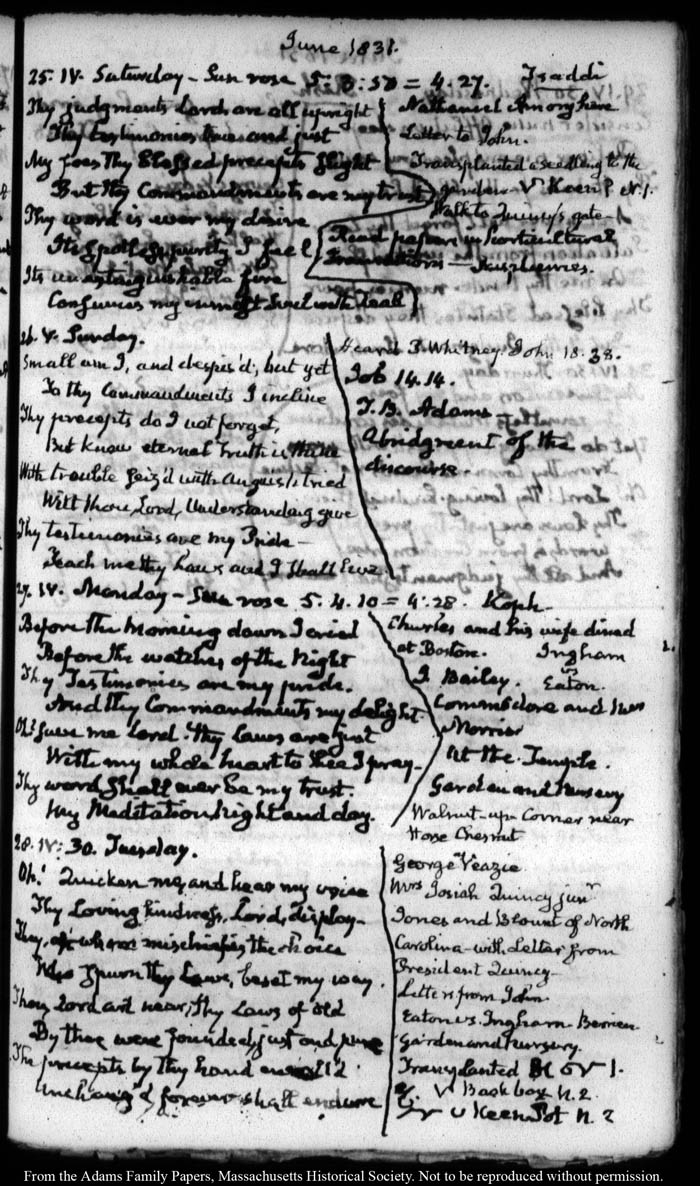 June 1831.
25. IV. Saturday — Sun rose 5. 3:50 = 4:27. Tsaddi
Thy judgments Lord are all upright
Thy testimonies true and just
My foes Thy Blessed precepts slight
But thy Commandments are my trust
Thy word is ever my desire
Its spotless purity I feel
Its unextinguishable fire
Consumes my inmost soul with Zeal
Nathaniel Amory here
Letter to John.
Transplanted a seedling to the
garden — V Keen P N. 1.
Walk to Quincy's gate —
Read papers in Horticultural
Transactions — Raspberries.
26. V. Sunday.
Small am I, and despis'd, but yet
To thy Commandments I incline
Thy precepts do I not forget,
But know eternal Truth is thine
With trouble seiz'd with anguish tried
Wilt thou, Lord, Understanding give
Thy testimonies are my Pride —
Teach me thy Laws and I shall live.
Heard F. Whitney. John 18. 38.
Job 14. 14.
T. B. Adams —
Abridgment of the
discourse.
27. IV. Monday — Sun rose 5. 4. 10 = 4:28. Koph —
Before the Morning dawn I cried
Before the watches of the Night
Thy Testimonies are my pride.
And thy Commandments my delight.
Oh! save me Lord. Thy laws are just
With my whole heart to thee I pray —
Thy word shall ever be my trust.
My Meditation Night and day.
Charles and his wife dined
at Boston. Ingham
vs
J. Bailey. Eaton.
Commodore and Mrs
Morris
At the Temple.
Garden and Nursery
Walnut — up — Corner near
Horse Chesnut
28. IV: 30. Tuesday.
Oh! Quicken me, and hear my voice
Thy Loving kindness, Lord, display —
They, of whom mischief is the choice
Who spurn thy Laws, beset my way.
Thou Lord art near, thy Laws of old
By thee were founded, just and pure
The precepts by thy hand
Unchang'd forever shall endure
George Veazie
Mrs Josiah Quincy junr
Jones and Blount of North
Carolina — with Letter from
President Quincy —
Letter from John
Eaton vs. Ingham Berrien
Garden and Nursery.
Transplanted
V Back box N. 2
V Keen Pot N. 2
From the Adams Family Papers, Massachusetts Historical Society. Not to be reproduced without permission.